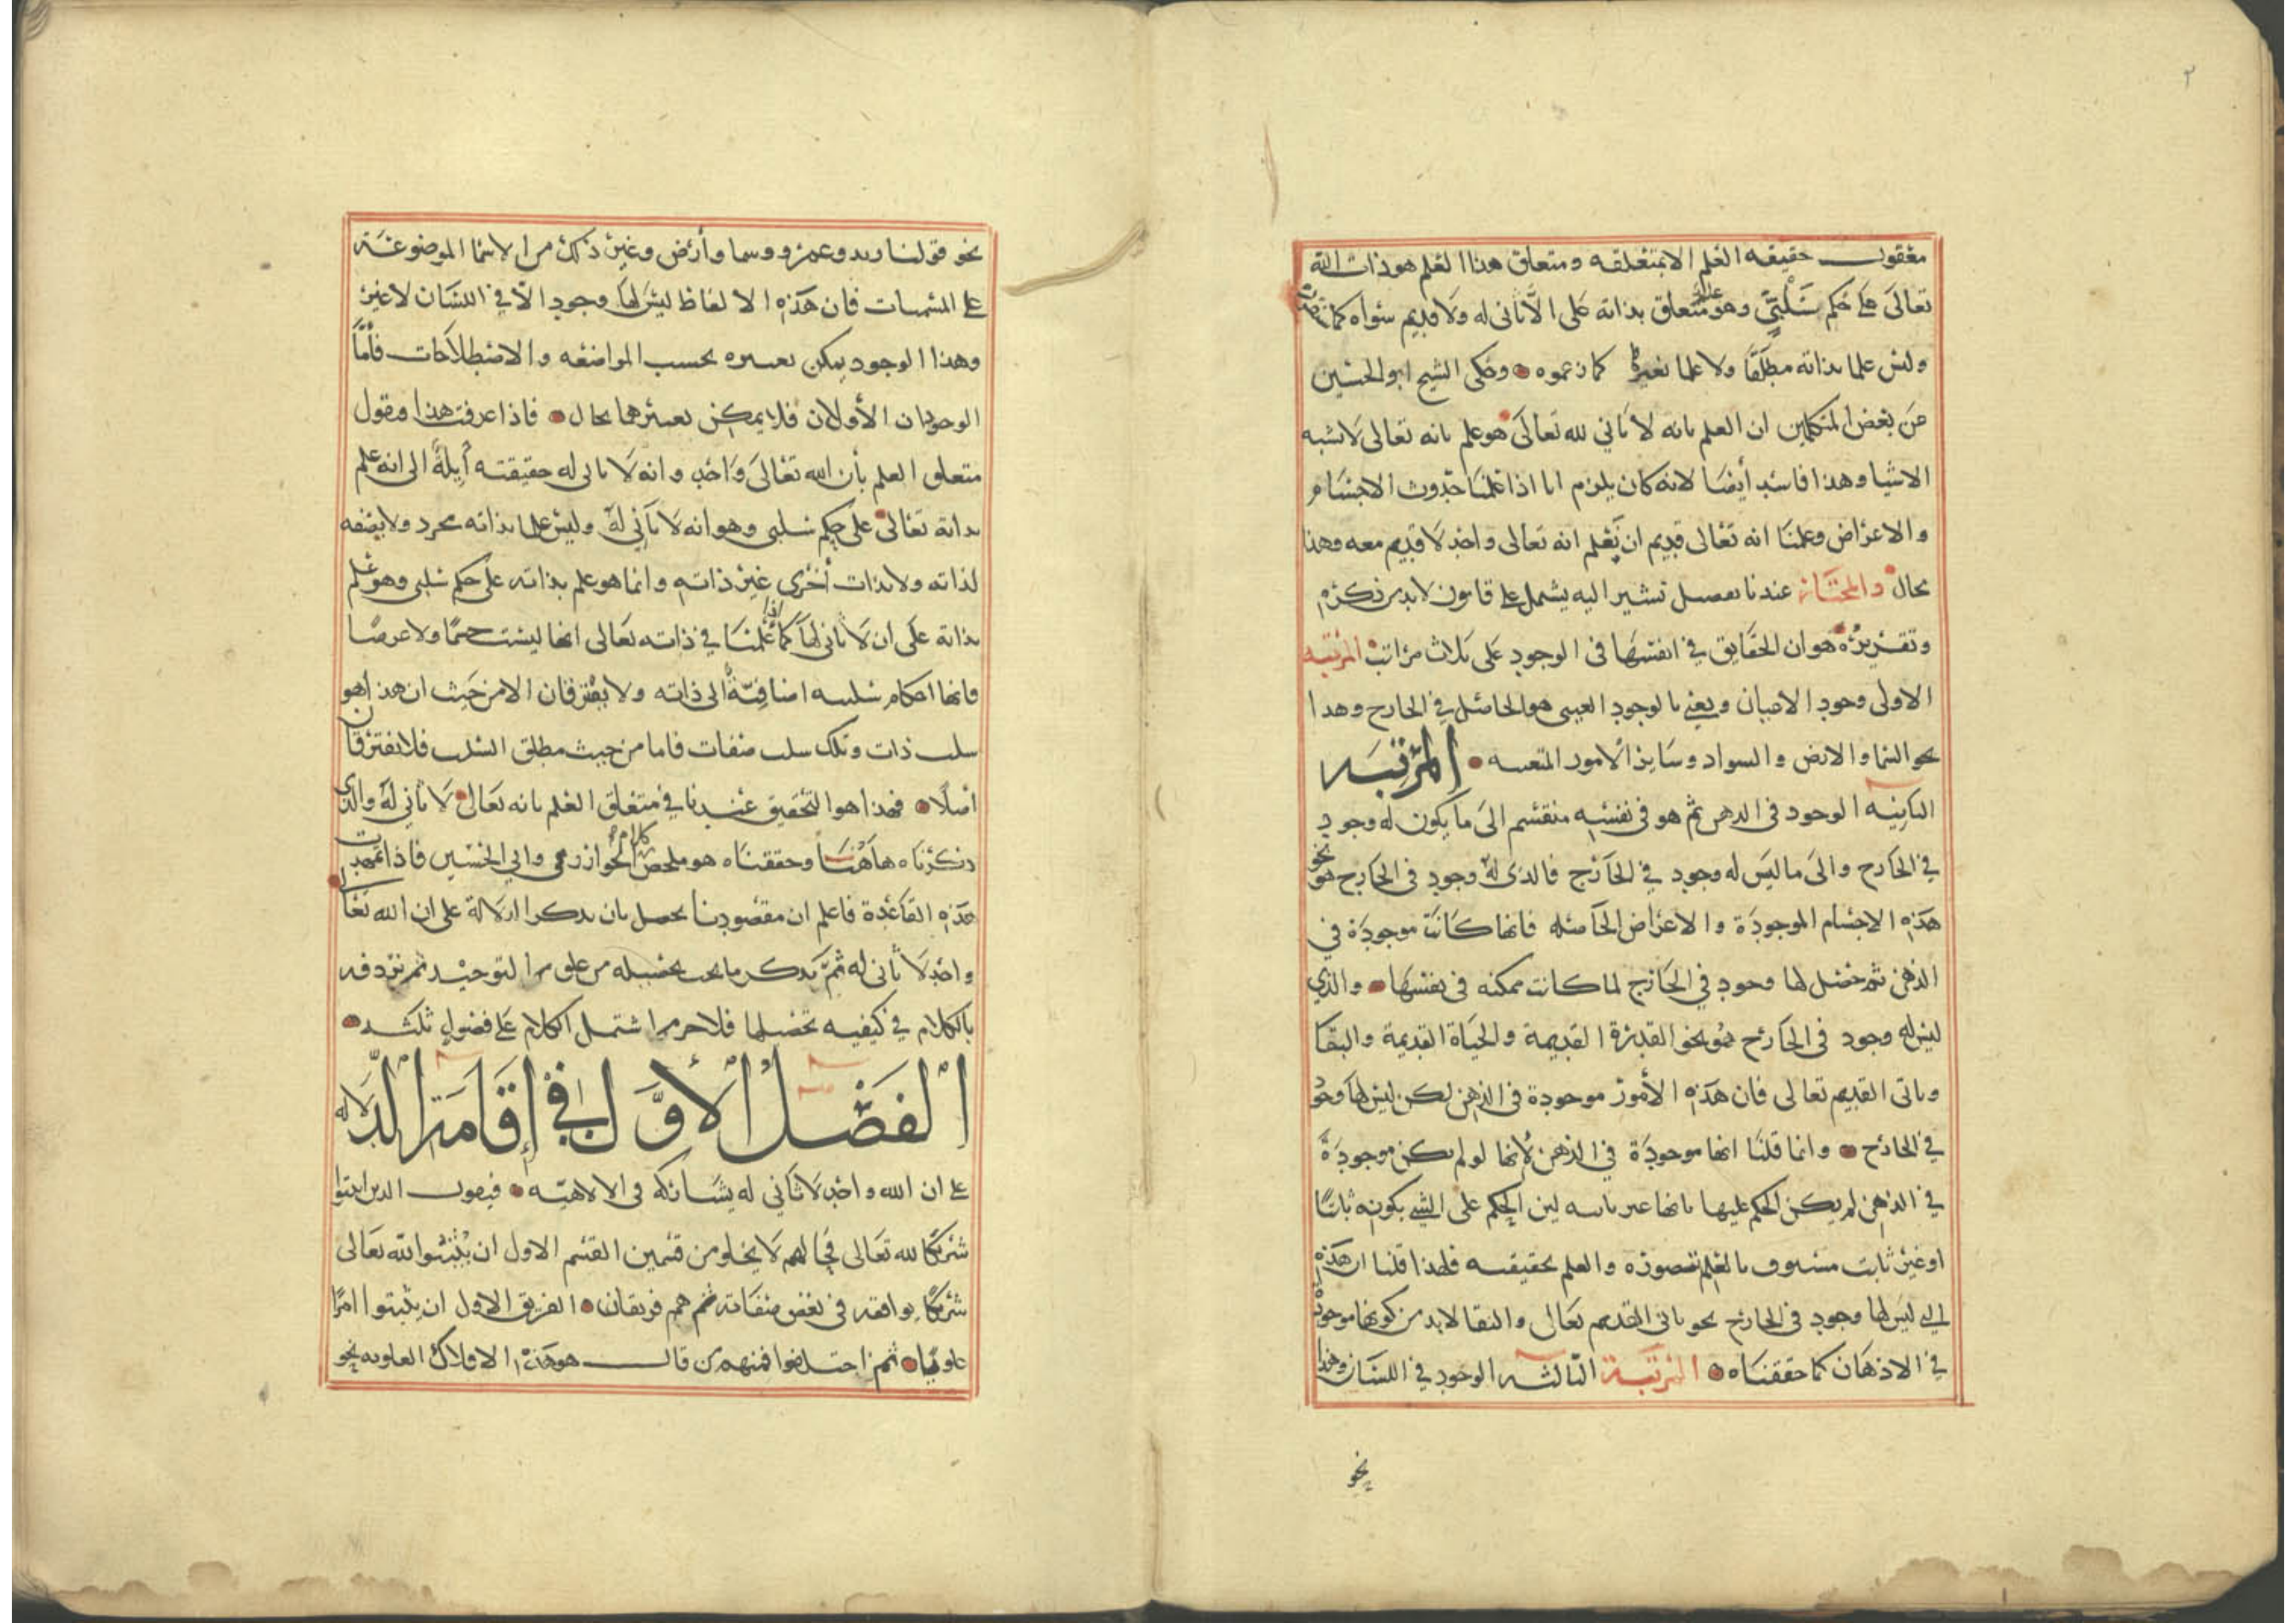 ٢
معقول حقيقه العلم الا بمتعلقه ومتعلق هذا العلم هو ذات الله
تعالى على حكم سلبي وهو علم متعلق بذاته على الا ثانى له ولا قديم سواه كما
وليس علما بذاته مطلقا ولا علما بغيره كما زعموه وحكى الشيخ ابو الحسين
عن بعض المتكلمين ان العلم بانه لا ثاني لله تعالى هو علم بانه تعالى لا تشبه
الاشيا وهذا فاسد أيضا لانه كان يلزم انا اذا علمنا حدوث الاجسام
والاعراض وعلمنا انه تعالى قديم ان نعلم انه تعالى واحد لا قديم معه وهذا
محال والمختار عندنا تفصيل نشير اليه يشمل على قانون لابد من ذكره
وتقريره هو ان الحقايق في انفسها فى الوجود على ثلاث مراتب المرتبه
الاولى وجود الاعيان ويعني بالوجود العينى هو الحاصل في الخارج وهذا
نحو السما والارض والسواد وسائر الامور المتعينه المرتبه
الثانيه الوجود فى الذهن ثم هو فى نفسه منقسم الى ما يكون له وجود
في الخارج والى ما ليس له وجود في الخارج فالذى له وجود فى الخارج هو نحو
هذه الاجسام الموجودة والاعراض الحاصله فانها كانت موجودة في
الذهن ثم حصل لها وجود في الخارج لما كانت ممكنه فى نفسها والذي
ليس له وجود فى الخارج هو نحو القدرة القديمة والحياة القديمة والبقا
وثاني القديم تعالى فان هذه الأمور موجودة فى الذهن لكن ليس لها وجود
في الخارج وانما قلنا انها موجودة في الذهن لأنها لو لم تكن موجودة
في الذهن لم يكن الحكم عليها بانها غير ثابته لان الحكم على الشي بكونه ثابتا
او غير ثابت مسبوق بالعلم بتصوره والعلم بحقيقته فلهذا قلنا ان هذه
التي ليس لها وجود فى الخارج نحو ثانى القديم تعالى والبقا لابد من كونها موجودة
في الاذهان كما حققناه المرتبة الثالثه الوجود في اللسان وهذا
نحو
نحو قولنا زيد وعمرو وسما وأرض وغير ذلك من الاسما الموضوعة
على المسميات فان هذه الالفاظ ليس لها وجود الا في اللسان لا غير
وهذا الوجود يمكن تغييره بحسب المواضعه والاصطلاحات فأما
الوجودان الأولان فلا يمكن تغييرهما بحال فاذا عرفت هذا فنقول
متعلق العلم بأن الله تعالى واحد وانه لا ثانى له حقيقته أيلة الى انه علم
بذاته تعالى على حكم سلبي وهو انه لا ثاني له وليس علما بذاته مجرد ولا بصفه
لذاته ولا بذات أخرى غير ذاته وانما هو علم بذاته على حكم سلبي وهو علم
بذاته على ان لا ثاني لها كما اذا علمنا في ذاته تعالى انها ليست جسما ولا عرضا
فانها احكام سلبيه اضافية الى ذاته ولا يفترقان الا من حيث ان هذا هو
سلب ذات وتلك سلب صفات فاما من حيث مطلق السلب فلا يفترقان
اصلا فهذا هو التحقيق عندنا في متعلق العلم بانه تعالى لا ثاني له والذى
ذكرناه هاهنا وحققناه هو ملخص كلام الخوارزمي وابي الحسين فاذا تمهدت
هذه القاعدة فاعلم ان مقصودنا يحصل بان نذكر الدلالة على ان الله تعالى
واحد لا ثاني له ثم نذكر ما يجب تحصيله من علوم التوحيد ثم نردفه
بالكلام في كيفيه تحصيلها فلا جرم اشتمل الكلام على فصول ثلثه
الفصل الأول في إقامة الدلاله
على ان الله واحد لا ثاني له يشاركه فى الالاهيه فنقول الذين اثبتوا
شريكا لله تعالى فحالهم لا يخلو من قسمين القسم الاول ان يثبتوا لله تعالى
شريكا يوافقه فى بعض صفاته ثم هم فريقان الفريق الاول ان يثبتوا امرا
علويا ثم اختلفوا فمنهم من قال هو هذه الافلاك العلويه نحو